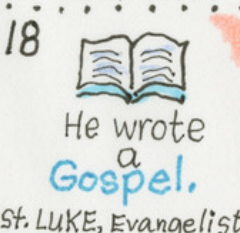 18
He wrote
a
Gospel.
St. LUKE, Evangelist